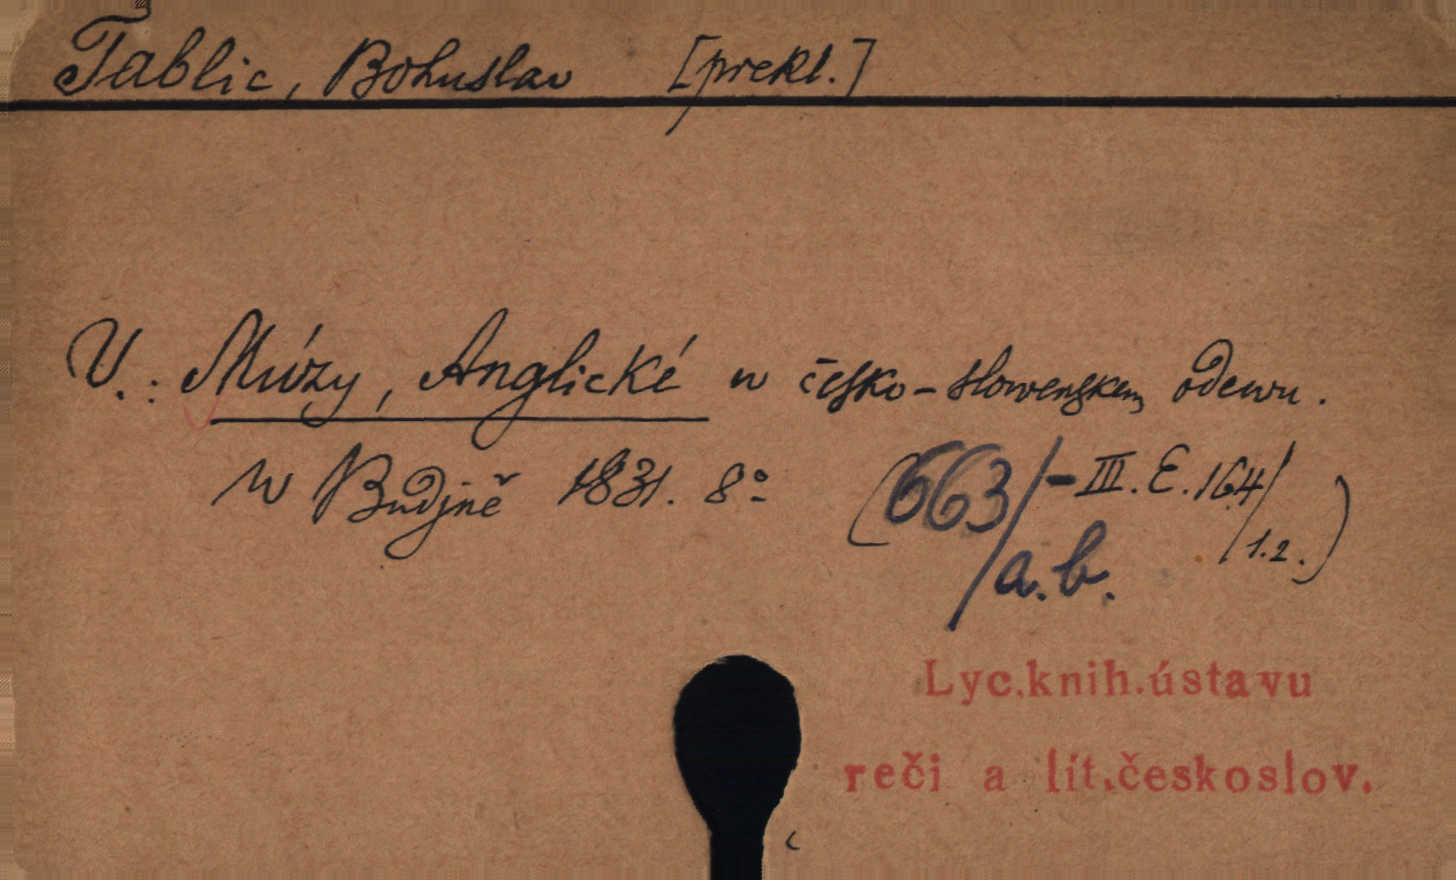 Tablic, Bohuslav [prekl.]
V.: Múzy, Anglické w česko-slowenskem oděwu.
w Budjně 1831. 8°
(663/a.b. - III. E. 164/1.2.)
Lyc.knih.ústavu
reči a lit.českoslov.